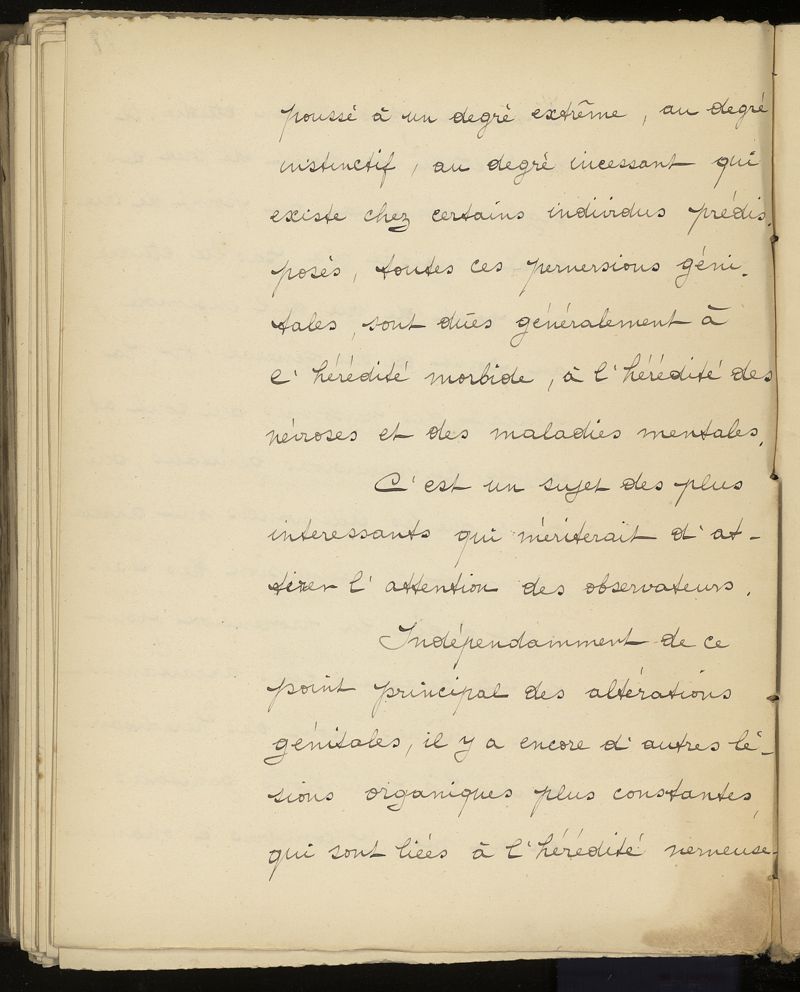 poussé à un degré extrême, au degré
instinctif, au degré incessant qui
existe chez certains individus prédis-
posés, toutes ces perversions géni-
tales, sont dües généralement à
l'hérédité morbide, à l'hérédité des
névroses et des maladies mentales.
C'est un sujet des plus
intéressants qui mériterait d'at-
tirer l'attention des observateurs.
Indépendamment de ce
point principal des altérations
génitales, il y a encore d'autres lé-
sions organiques plus constantes
qui sont liées à l'hérédité nerveuse.